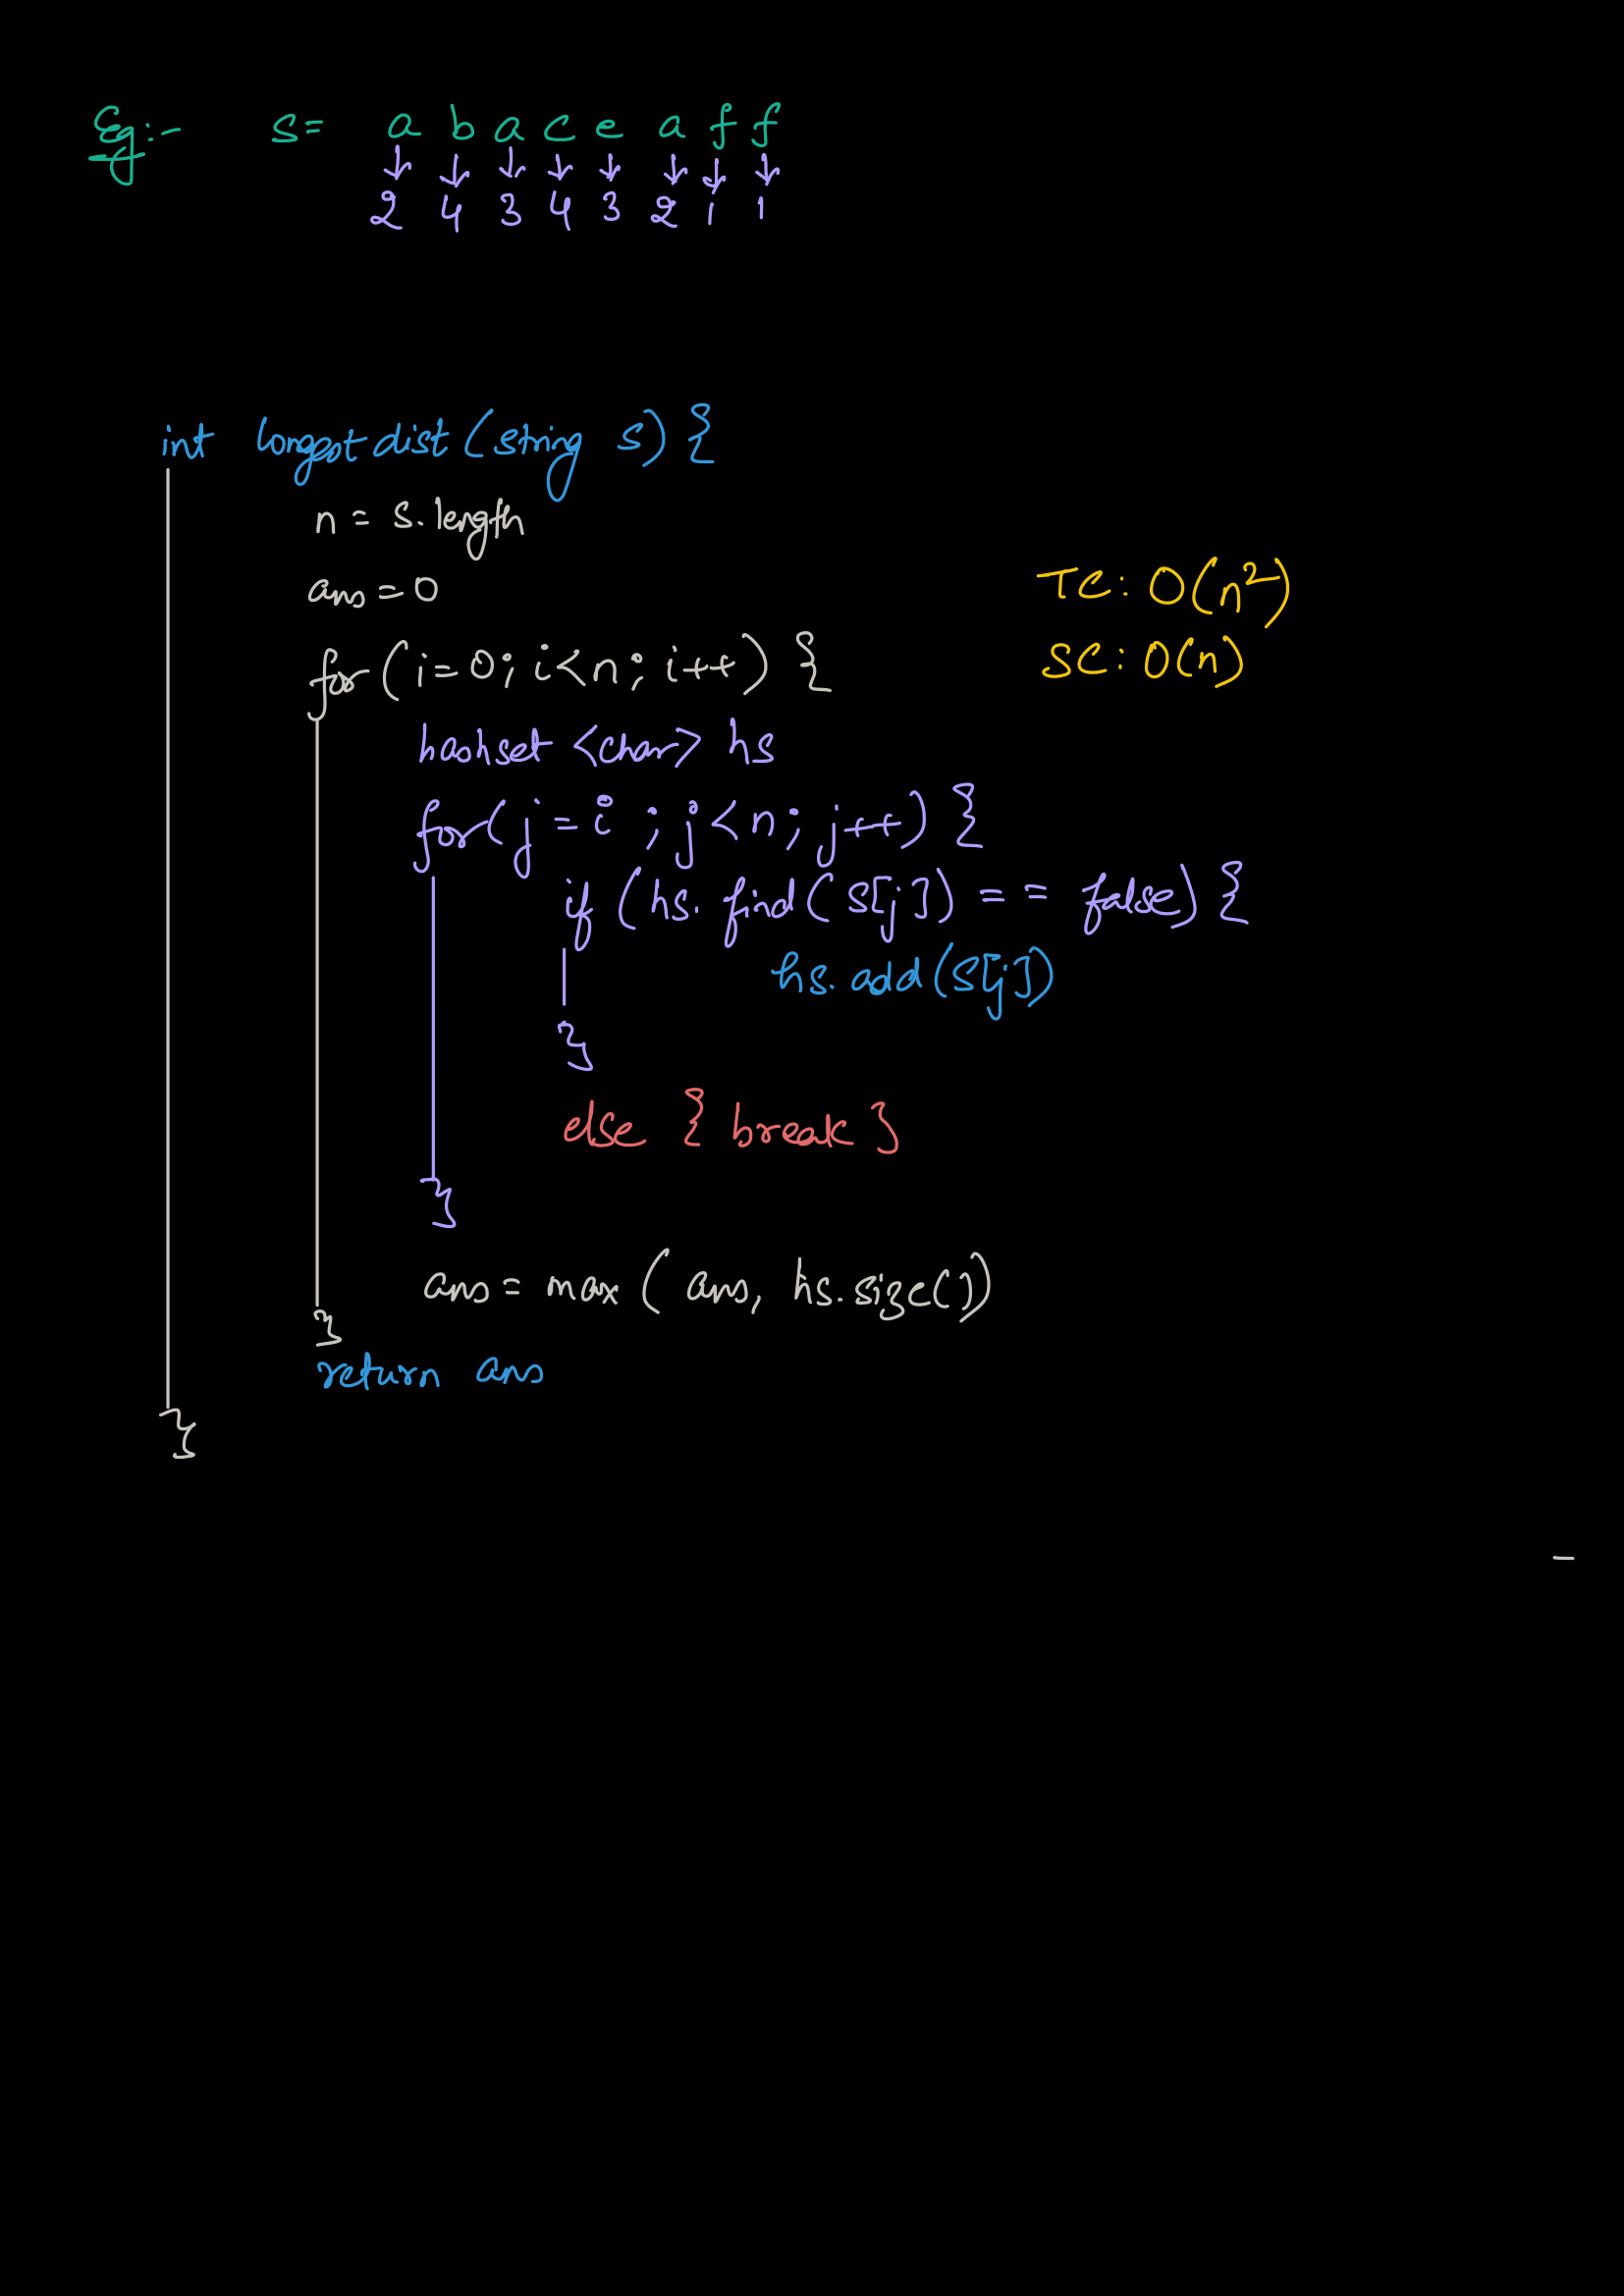 Eg:- s= a b a c e a f f
↓ ↓ ↓ ↓ ↓ ↓ ↓ ↓
2 4 3 4 3 2 1 1
int longestdist(string s) {
n = s.length
ans = 0
TC: O(n²)
for(i=0; i<n; i++) {
SC: O(n)
hashset <char> hs
for(j=i; j<n; j++) {
if (hs.find(s[j]) == false) {
hs.add(s[j])
}
else { break }
}
ans = max(ans, hs.size())
}
return ans
}